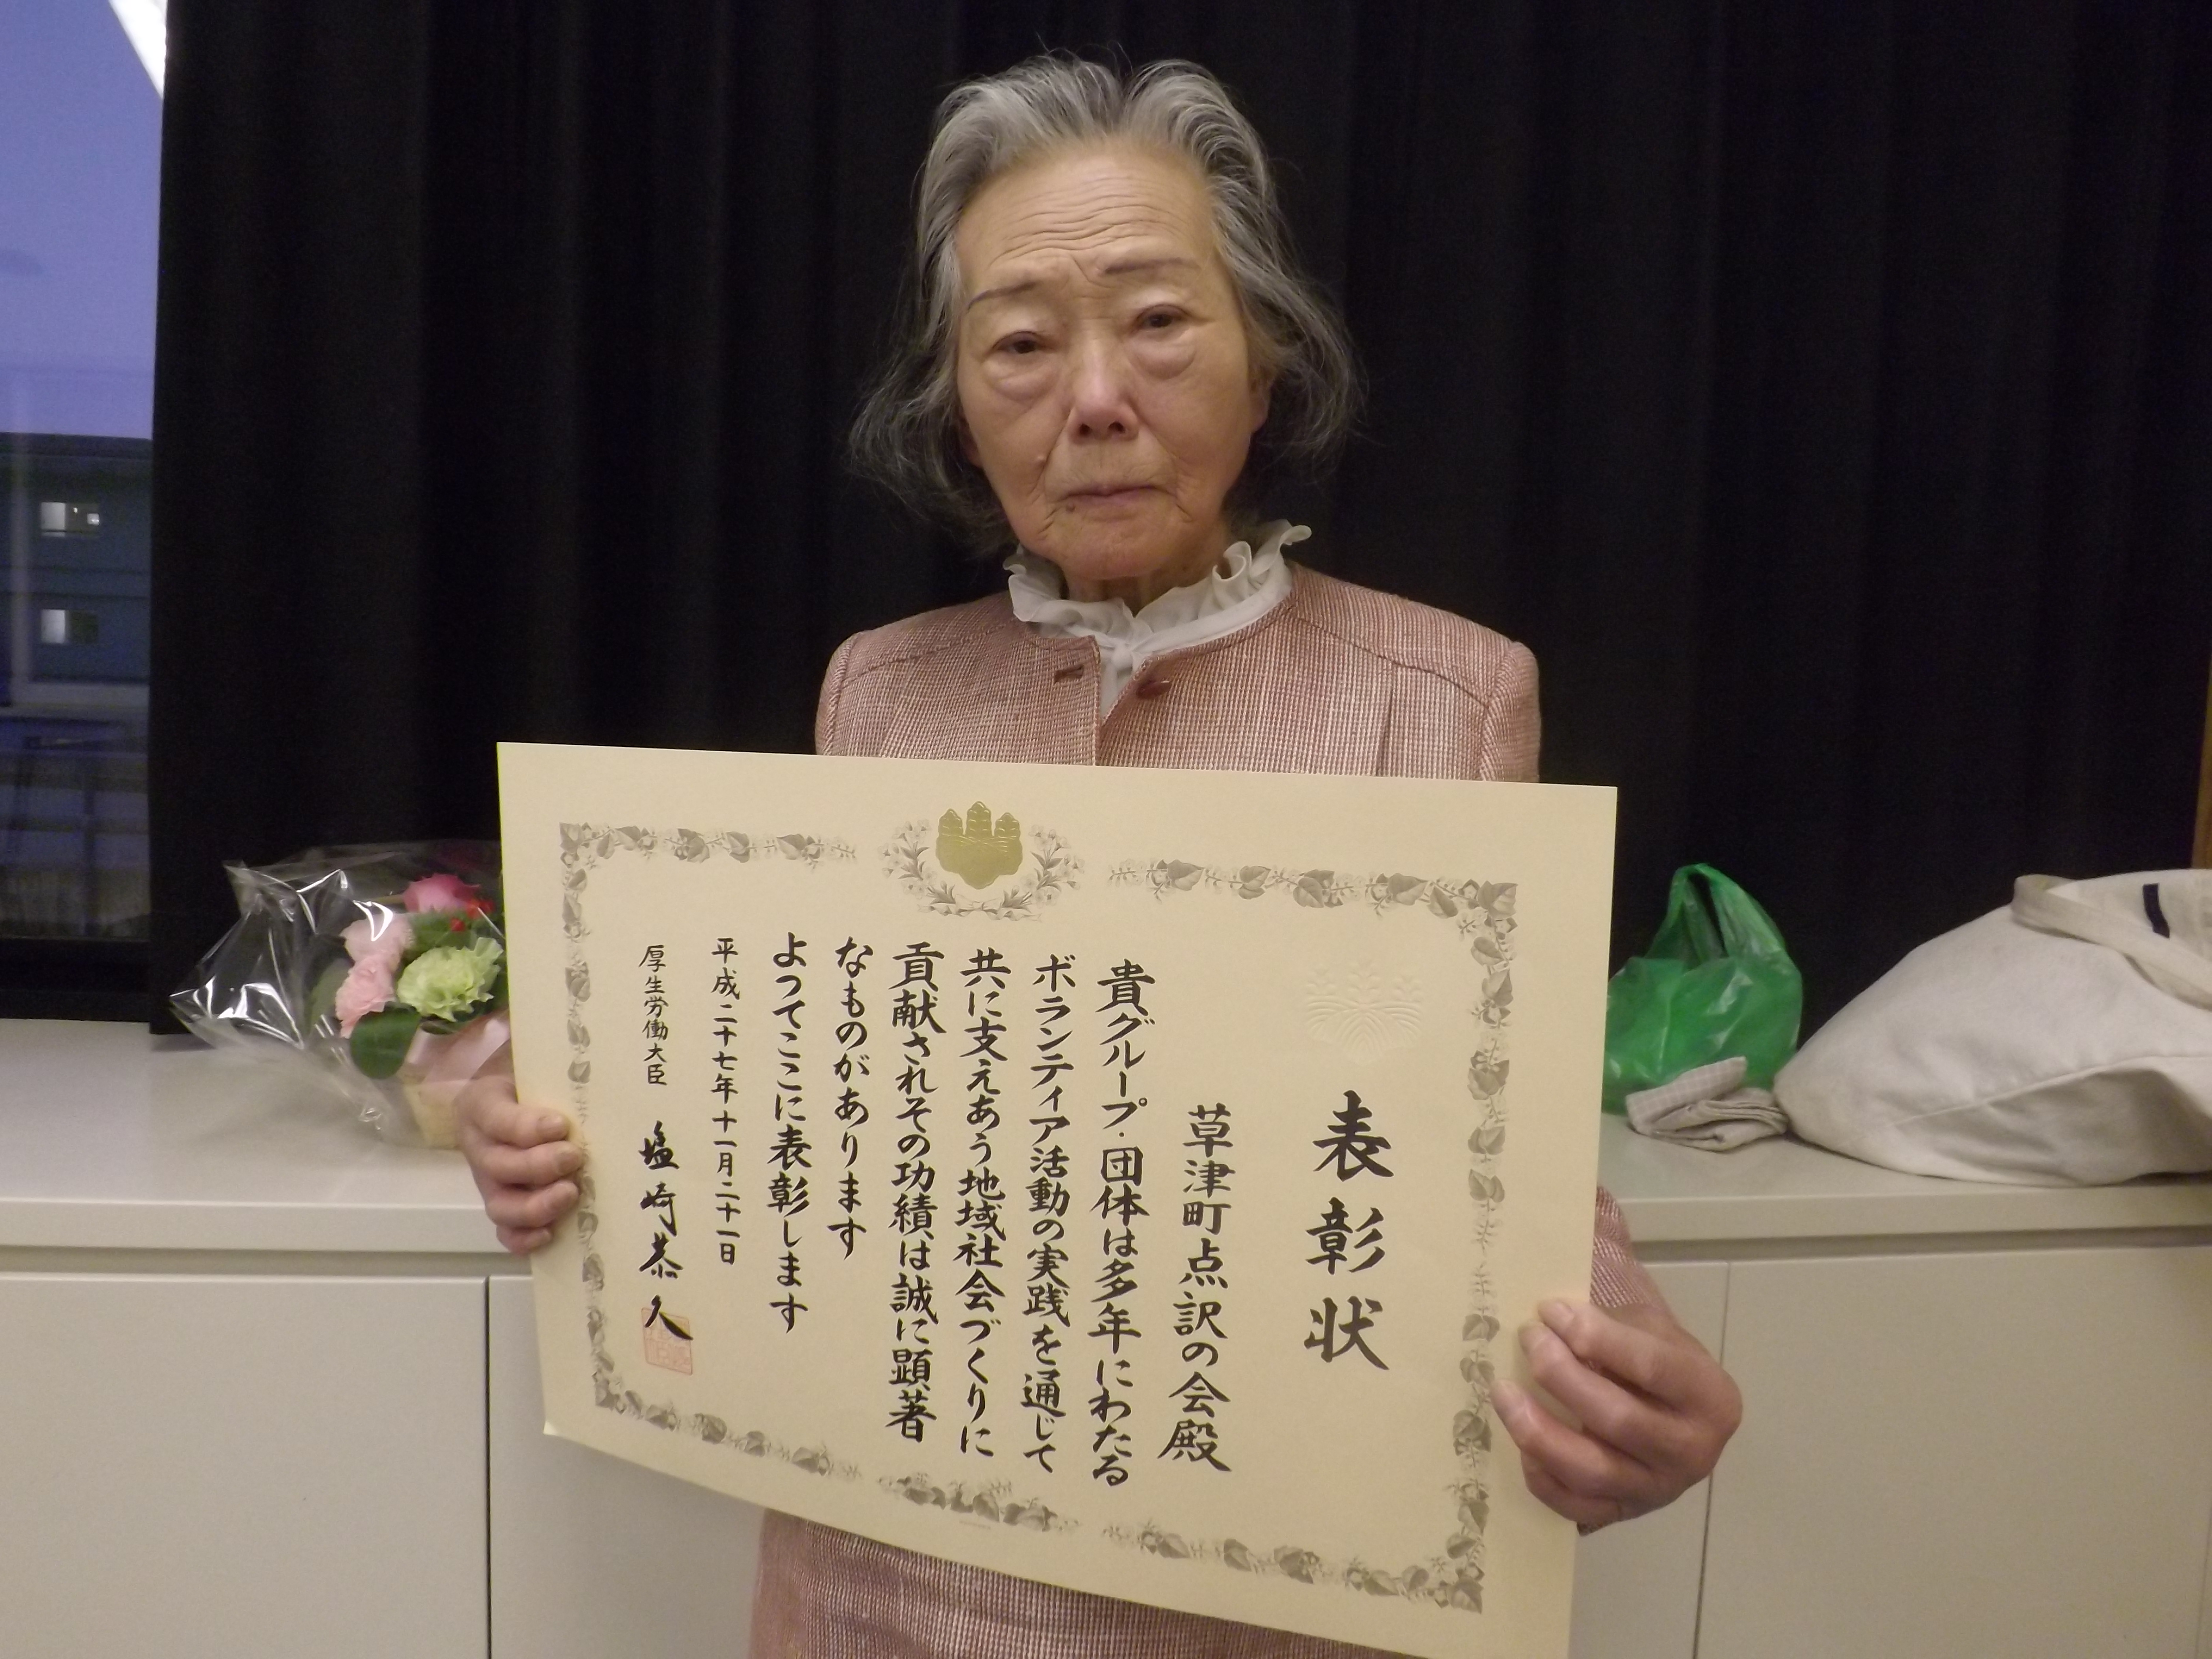 表彰状
草津町点訳の会殿
貴グループ・団体は多年にわたる
ボランティア活動の実践を通じて
共に支えあう地域社会づくりに
貢献されその功績は誠に顕著
なものがあります
よってここに表彰します
平成二十七年十一月二十一日
厚生労働大臣 塩崎恭久